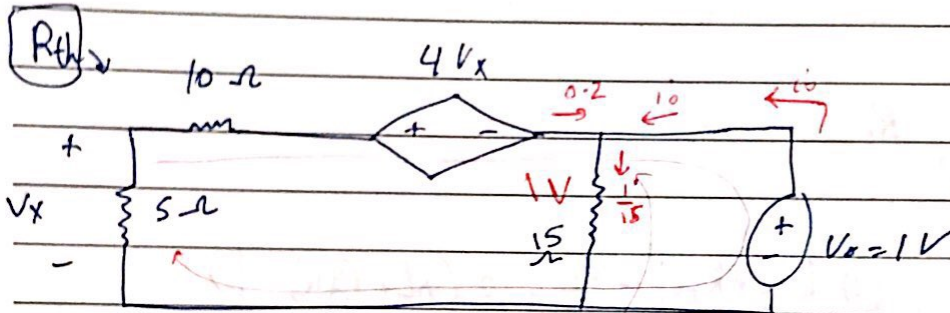 Rth
10 Ω
4 Vx
0.2
io
io
+ -
+
Vx
-
5 Ω
1 V
1/15
15 Ω
+
-
Vo = 1 V